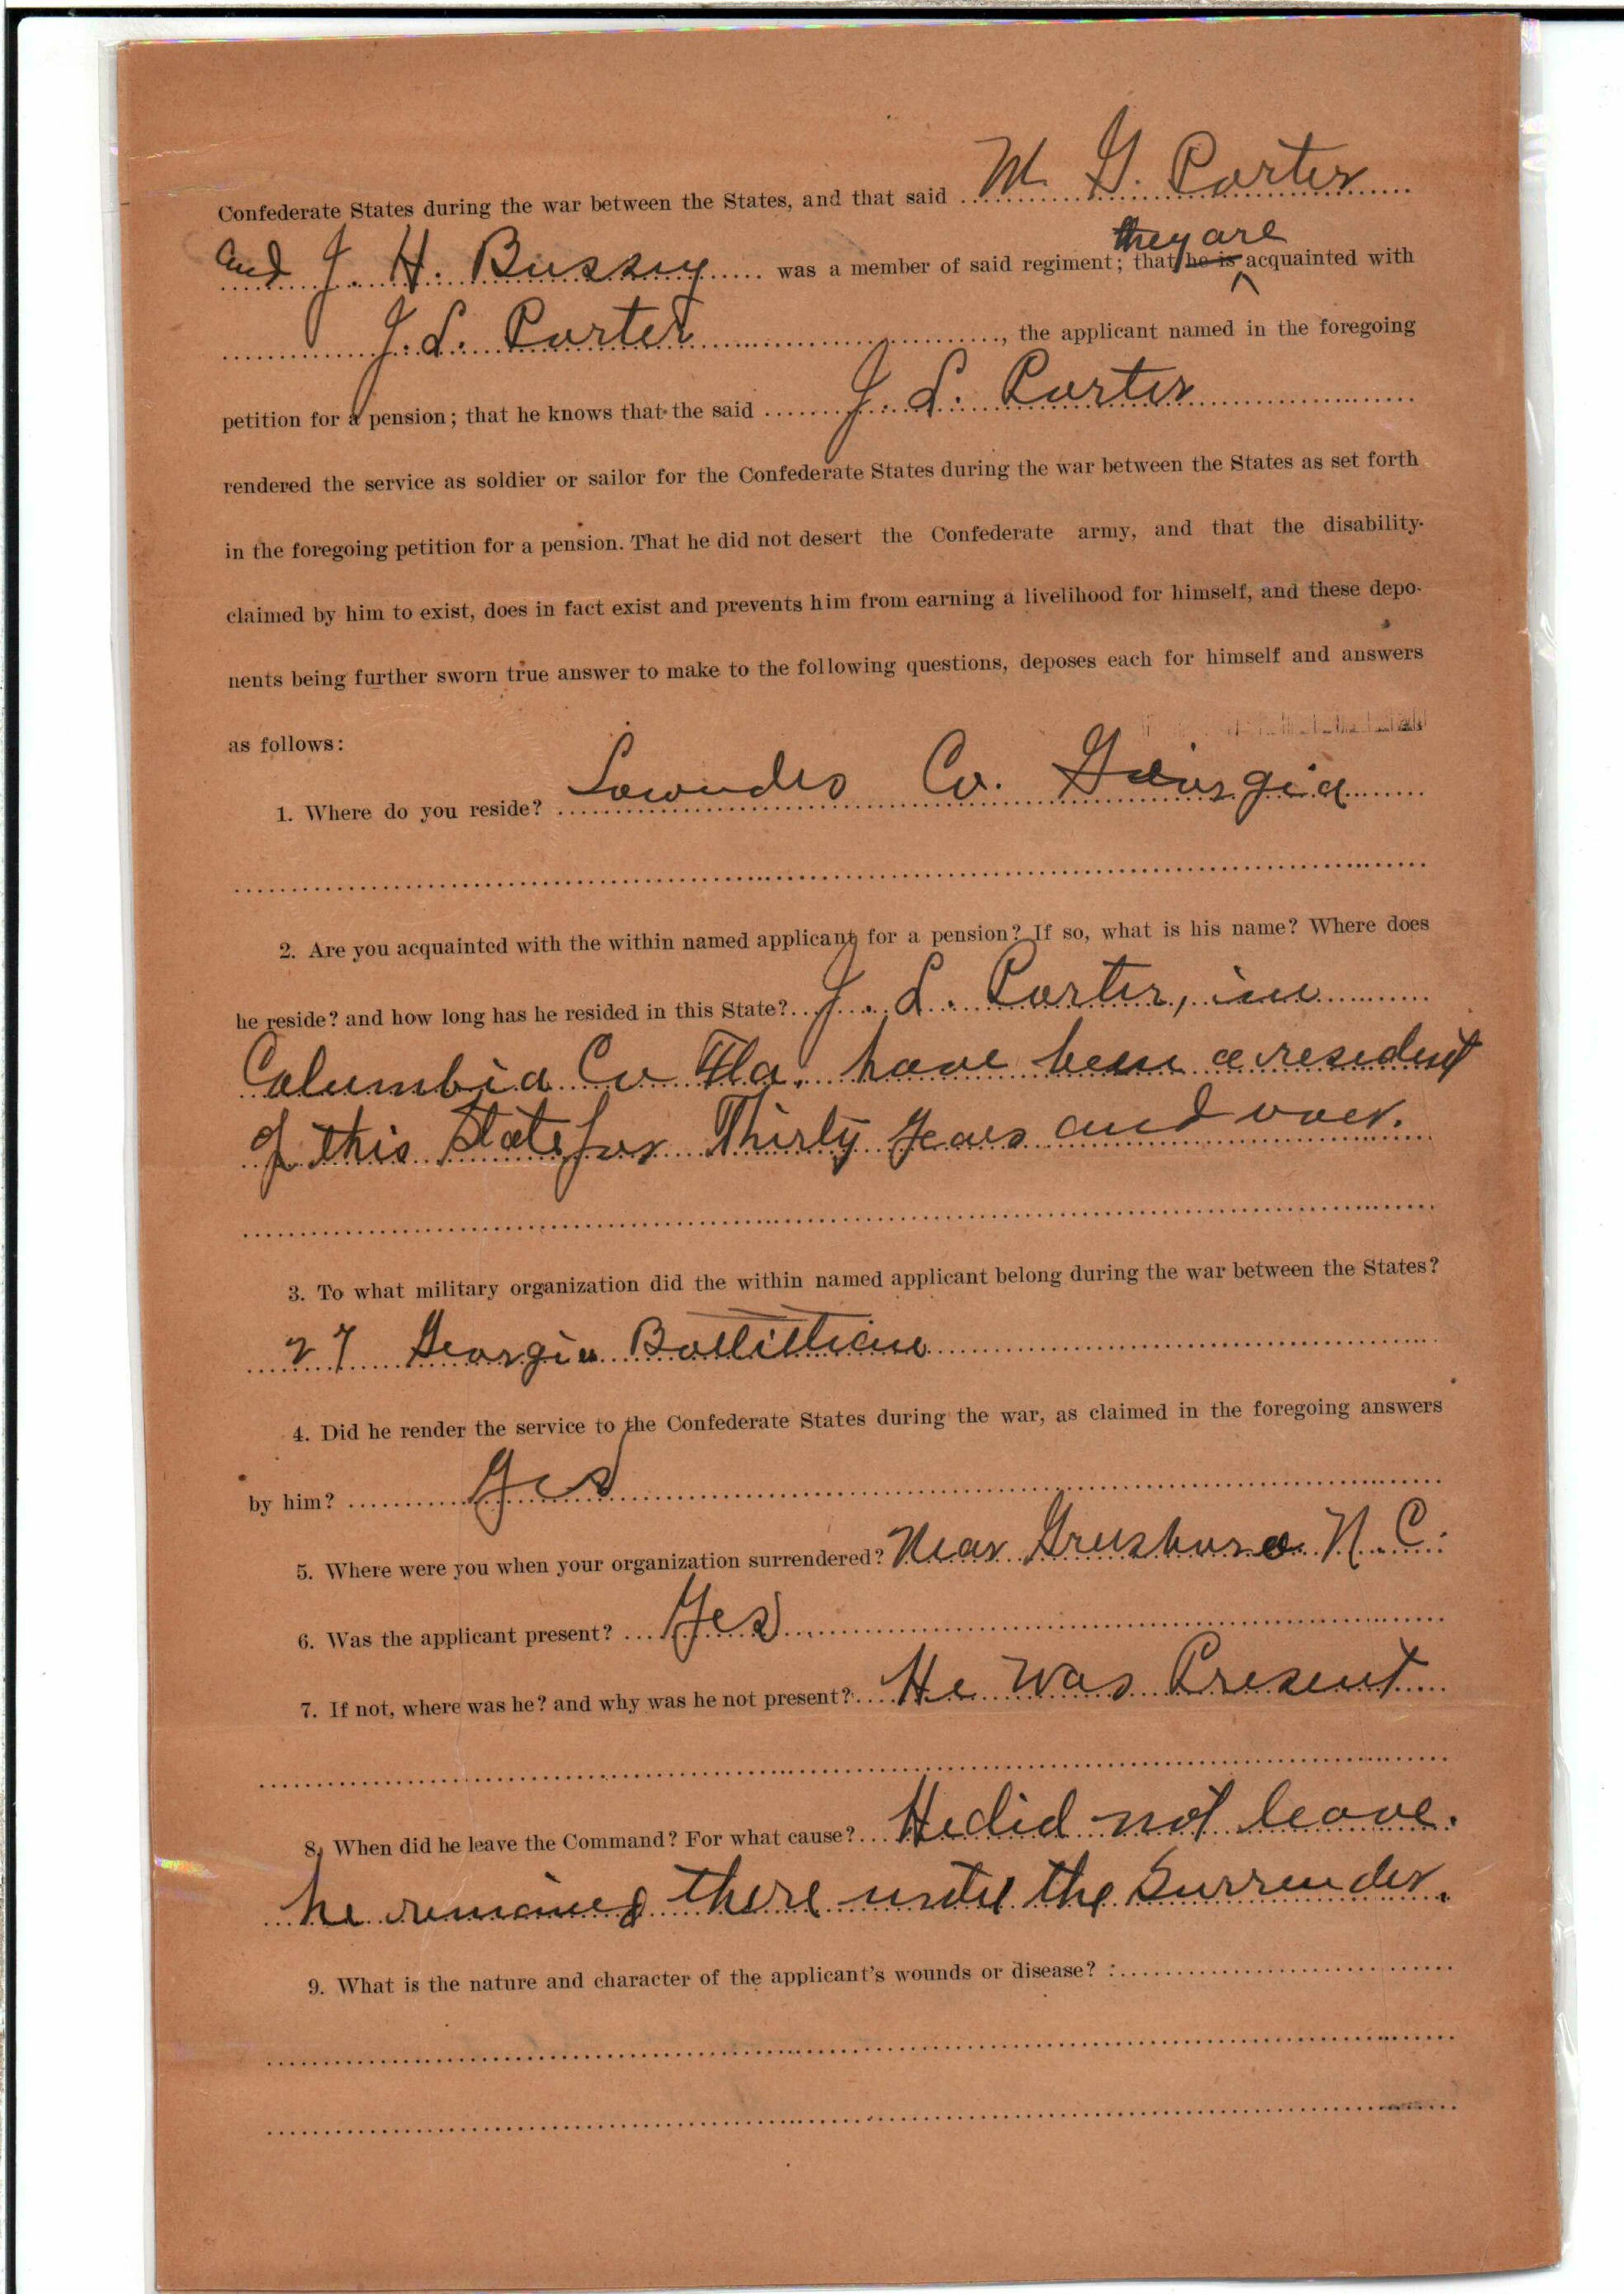 Confederate States during the war between the States, and that said M. G. Porter
and J. H. Bussey was a member of said regiment; that he is they are acquainted with
J. L. Porter, the applicant named in the foregoing
petition for a pension; that he knows that the said J. L. Porter
rendered the service as soldier or sailor for the Confederate States during the war between the States as set forth
in the foregoing petition for a pension. That he did not desert the Confederate army, and that the disability
claimed by him to exist, does in fact exist and prevents him from earning a livelihood for himself, and these depo-
nents being further sworn true answer to make to the following questions, deposes each for himself and answers
as follows:
1. Where do you reside? Lowndes Co. Georgia
2. Are you acquainted with the within named applicant for a pension? If so, what is his name? Where does
he reside? and how long has he resided in this State? J. L. Porter, in
Columbia Co Fla. have been a resident
of this State for Thirty years and over.
3. To what military organization did the within named applicant belong during the war between the States?
27 Georgia Battiltian
4. Did he render the service to the Confederate States during the war, as claimed in the foregoing answers
by him? Yes
5. Where were you when your organization surrendered? Near Grusboro N. C.
6. Was the applicant present? Yes
7. If not, where was he? and why was he not present? He was Present
8. When did he leave the Command? For what cause? He did not leave.
he remained there until the Surrender.
9. What is the nature and character of the applicant's wounds or disease? :